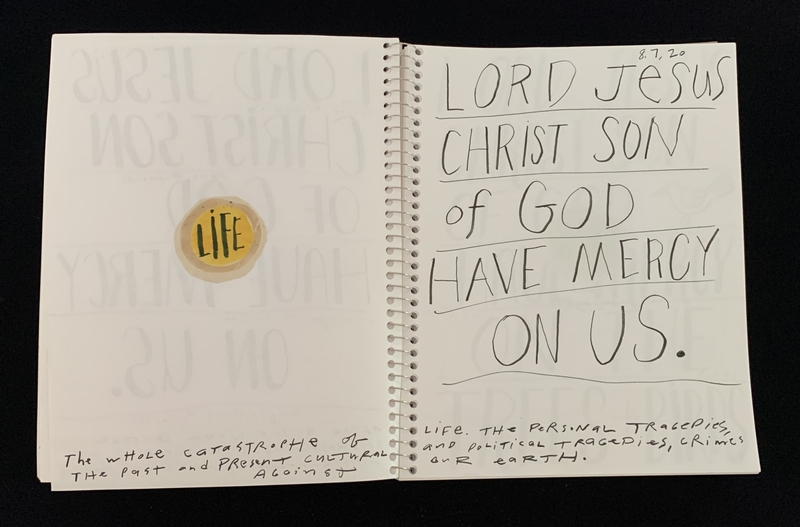 LIFE
The WHOLE CATASTROPHE of
THE PAST and PRESENT CULTURAL
AGAINST
8.7,20
LORD JeSUS
CHRIST SON
of GOD
HAVE MERCY
ON US.
LIFE. THE PERSONAL TRAGEDIES,
and POLITICAL TRAGEDIES, CRIMES
OUR EARTH.